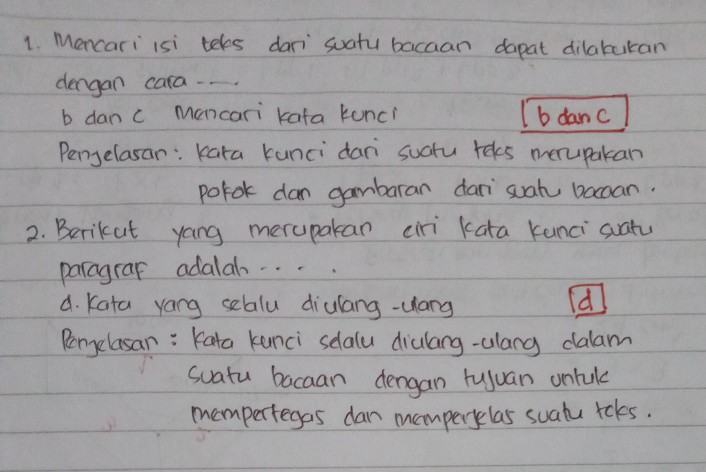 1. Mencari isi teks dari suatu bacaan dapat dilakukan
dengan cara ....
b dan c Mencari kata kunci b dan c
Penjelasan : Kata kunci dari suatu teks merupakan
pokok dan gambaran dari suatu bacaan.
2. Berikut yang merupakan ciri kata kunci suatu
paragraf adalah ....
d. Kata yang selalu diulang-ulang d
Penjelasan : Kata kunci selalu diulang-ulang dalam
suatu bacaan dengan tujuan untuk
mempertegas dan memperjelas suatu teks.